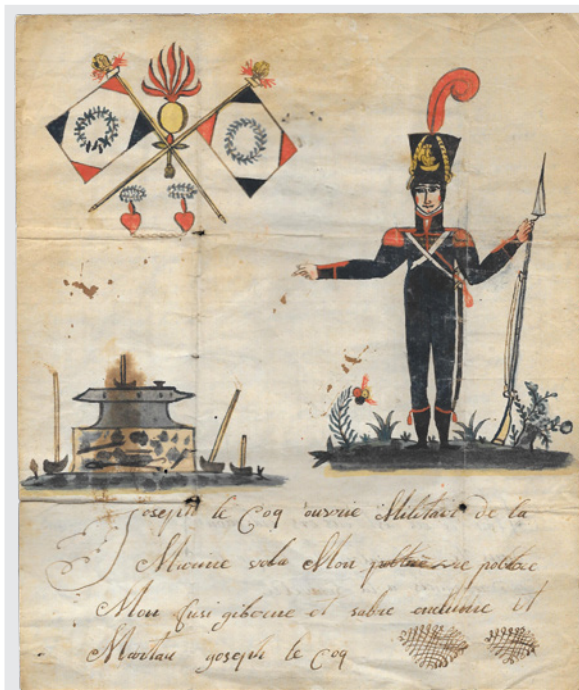 Joseph le Coq ouvrie Militare de la
Marine vola Mon
Mon fusi giberne et sabre enclume et
Martau joseph le Coq